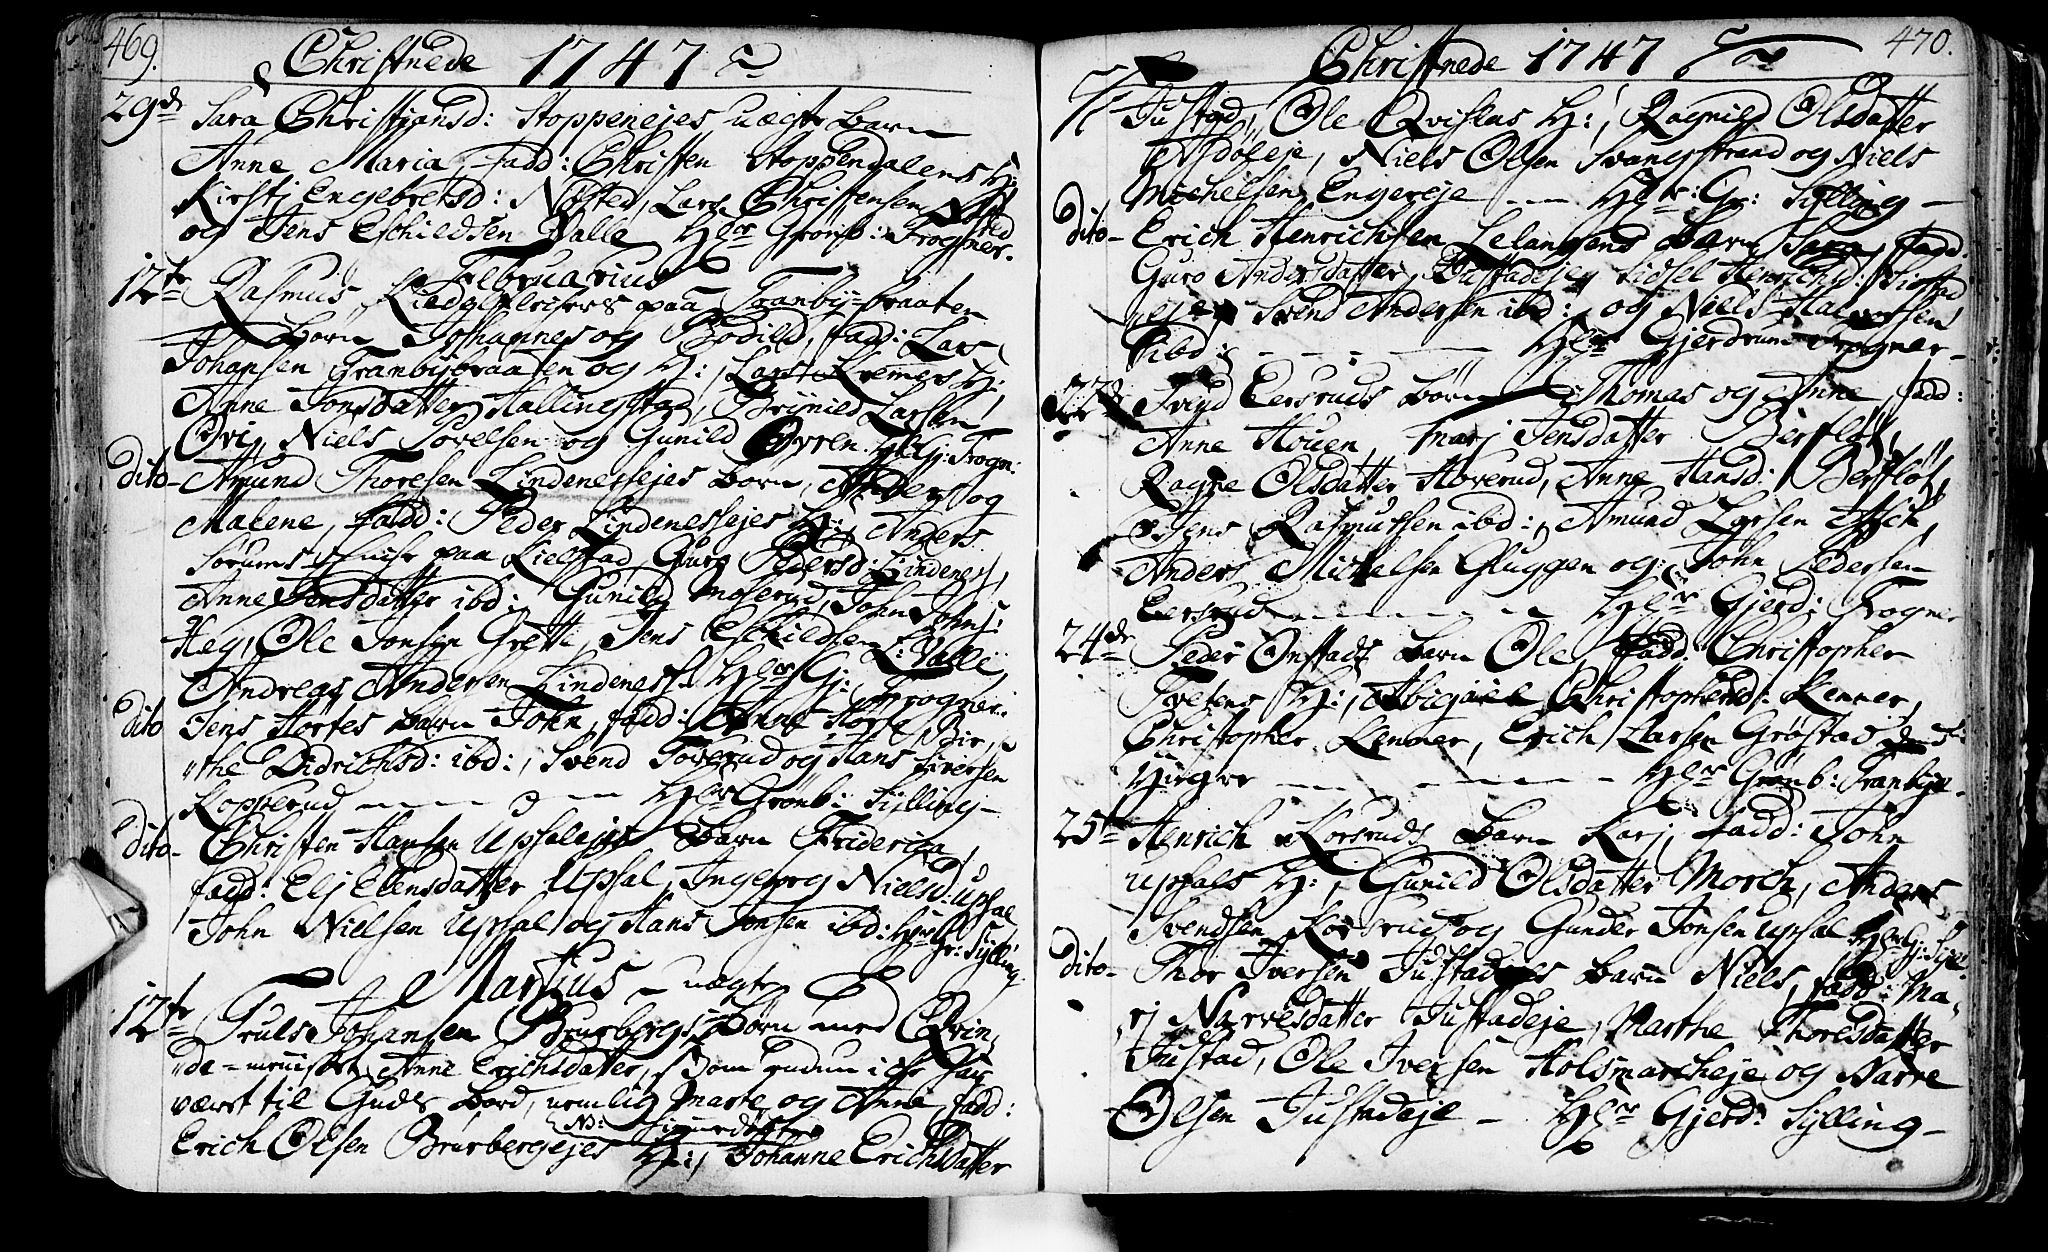 469.
Christnede 1747
29de Sara Christiansd: Stoppenejes uægte Barn
Anne Maria, fadd: Christen Stoppendalens H:
Kirstj Engebretsd: Nøsted, Lars Christensen
og Jens Eschildsen Valle Hlor Grønb: Frogner.
Februarius
12te Rasmus paa Tranby-braaten
Børn Johannes og Bodild, fadd: Lars
Johansen Tranbybraaten og H:, Lars Kremers H:,
Anne Jonsdatter Hallingstad, Brynild Larsen
Qvi, Niels Povelsen og Gunild Øvren. Hlr Gj: Frogn:
Dito- Amund Thoresen Lindenessejes Børn, Anders og
Malene, fadd: Peder Lindenessejes H:, Anders
Sørums paa Kielstad, Guro Pedersd: Lindeness,
Anne Jonsdatter ibd: Gunild Moserud, John Johns:
Heg, Ole Jonsen Grette, Jens Eschildsen L: Valle,
Andreas Andersen Lindeness. Hlor Gj: Frogner.
Dito Jens Hørtes Barn John, fadd: Anne Hørte, Bir,
"the Didrichsd: ibd:, Svend Toverud og Hans Iversen
Kopperud — — — Hlr Grønb: Sylling-
Dito- Christen Hansen Upsalejes Barn Friderica,
fadd: Elj Ellensdatter Upsal, Ingeborg Nielsd: Upsal
John Nielsen Upsal og Hans Jonsen ibd: Hlr Gr: Sylling.
Martius
uægte
12te Truls Johansen Brurbergs Børn med Qvin,
"de-mennisket Anne Erichsdatter, som endnu icke har
været til Guds Bord, nemlig Marte og Anne, fadd:
Erich Olsen Brurbergejes H:, Johanne Erichsdatter
470.
Christnede 1747
Justad, Ole Qvislas H:, Ragnild Olsdatter
Asdøleje, Niels Olsen Svangstrand og Niels
Michelsen Engereje — — Hlr: Gr: Sylling —
Dito- Erich Henrichsen Lelangens Barn Sara, fadd:
Guro Andersdatter, Justadeje, Sidsel Henrichsd:
eje, Svend Andersen ibd: og Niels Halvorsen
ibd: — — — Hlr Gjerdrum Frogner-
Eersruds Børn Thomas og Anne, fadd:
Anne Houen, Marj Jensdatter Berfløt,
Ragne Olsdatter Hoverud, Anne Hansd: Berfløt,
Jens Rasmussen ibd:, Amund Larsen Ask,
Anders Michelsen Gluggen og John Pedersen
Eersrud — — — Hlr Gjerd: Frogner
24de Peder Onstads Barn Ole, fadd: Christopher
Tvetens H:, Abigael Christophersd: Lenner,
Christopher Lenner, Erich Larsen Grøstad
— — — Hlr Grønb: Tranbye.
25te Henrich Korsruds Barn Karj, fadd: John
Upsals H:, Gunild Olsdatter Morch, Anders
Svendsen Korsrud og Gunder Jonsen Upsal Hlr Gj: Syl:
Dito- Thor Iversen Justadejes Barn Niels, fadd: Ma-
"rj Narvesdatter Justadeje, Marthe Thoresdatter
Justad, Ole Iversen Holsmarcheje og Narve
Olsen Justadeje — Hlr Gjerd: Sylling —